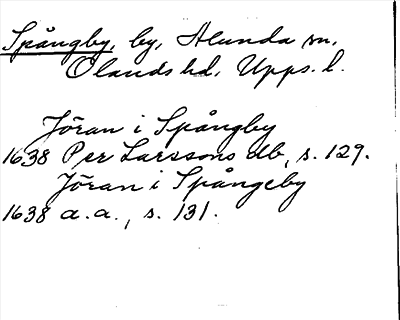 Spångby, by, Alunda sn,
Olands hd, Upps. l.
Jöran i Spångby
1638 Per Larssons db, s. 129.
Jöran i Spångeby
1638 a.a., s. 131.